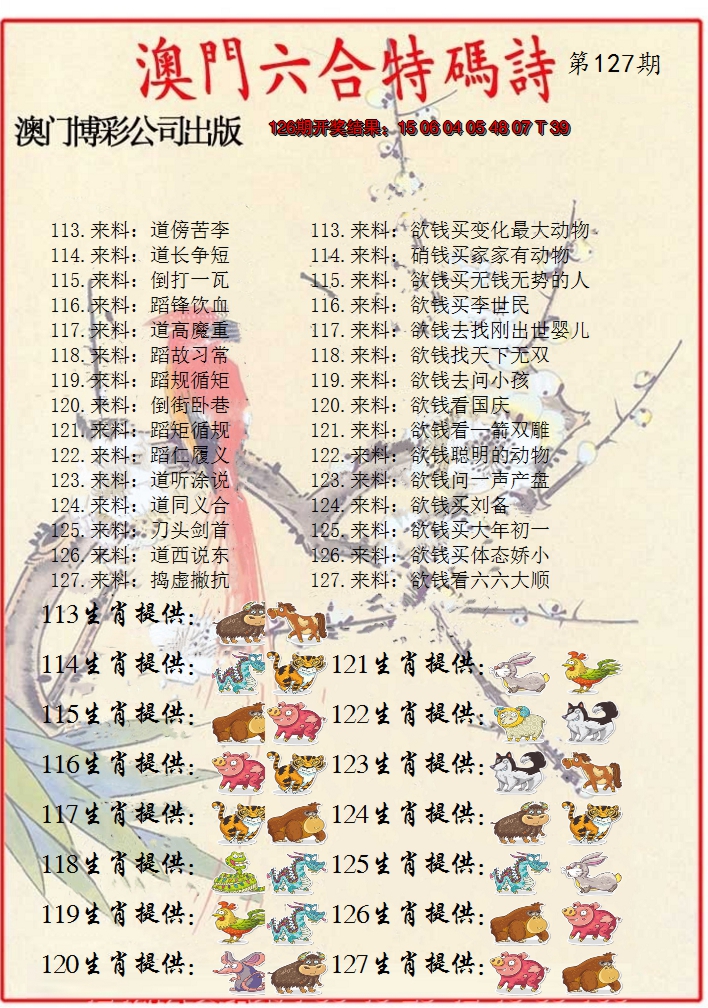 澳門六合特碼詩 第127期
澳门博彩公司出版 126期开奖结果：15 06 04 05 48 07 T 39
113.来料：道傍苦李 113.来料：欲钱买变化最大动物
114.来料：道长争短 114.来料：硝钱买家家有动物
115.来料：倒打一瓦 115.来料：欲钱买无钱无势的人
116.来料：蹈锋饮血 116.来料：欲钱买李世民
117.来料：道高魔重 117.来料：欲钱去找刚出世婴儿
118.来料：蹈故习常 118.来料：欲钱找天下无双
119.来料：蹈规循矩 119.来料：欲钱去问小孩
120.来料：倒街卧巷 120.来料：欲钱看国庆
121.来料：蹈矩循规 121.来料：欲钱看一箭双雕
122.来料：蹈仁履义 122.来料：欲钱聪明的动物
123.来料：道听涂说 123.来料：欲钱问一声产盘
124.来料：道同义合 124.来料：欲钱买刘备
125.来料：刃头剑首 125.来料：欲钱买大年初一
126.来料：道西说东 126.来料：欲钱买体态娇小
127.来料：捣虚撇抗 127.来料：欲钱看六六大顺
113生肖提供：
114生肖提供： 121生肖提供：
115生肖提供： 122生肖提供：
116生肖提供： 123生肖提供：
117生肖提供： 124生肖提供：
118生肖提供： 125生肖提供：
119生肖提供： 126生肖提供：
120生肖提供： 127生肖提供：